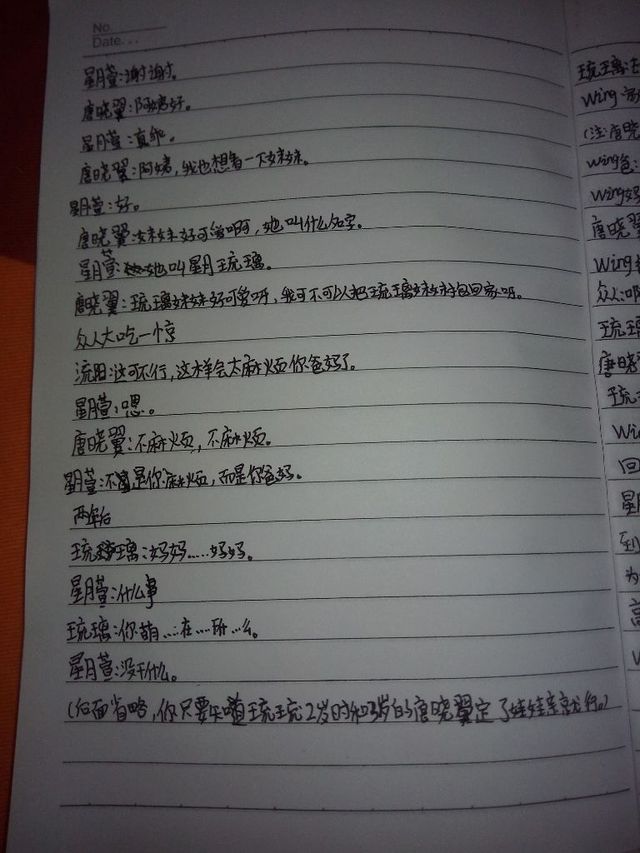 No.
Date...
星月萱:谢谢。
唐晓翼:阿姨好。
星月萱:真乖。
唐晓翼:阿姨,我也想看一下妹妹。
星月萱:好。
唐晓翼:妹妹好可爱啊,她叫什么名字。
星月萱:她叫星月琉璃。
唐晓翼:琉璃妹妹好可爱呀,我可不可以把琉璃妹妹包回家呀。
众人大吃一惊
流阳:这可不行,这样会太麻烦你爸妈了。
星月萱:嗯。
唐晓翼:不麻烦,不麻烦。
星月萱:不是你麻烦,而是你爸妈。
两年后
琉璃:妈妈……妈妈。
星月萱:什么事
琉璃:你萌……在……所…么。
星月萱:没干什么。
(后面省略,你只要知道琉琉2岁时和3岁的唐晓翼定了娃娃亲就行。)
琉璃:
Wing
(注:唐晓
Wing爸:
Wing妈
唐晓翼
Wing
众人:
琉璃
唐晓
Win
回
星月
到
为
高
W